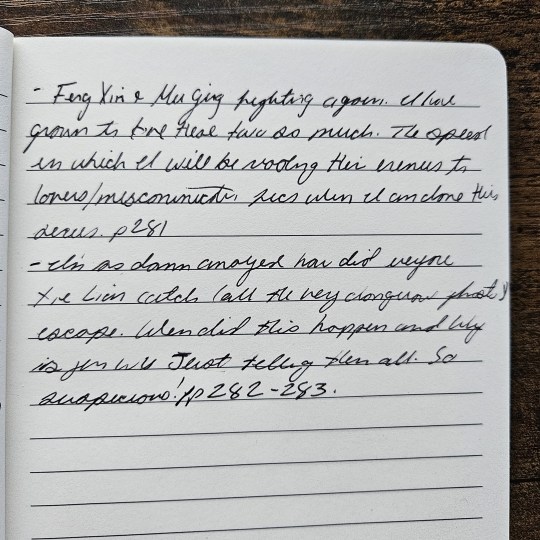 - Feng Xin & Mu Qing fighting again. I have
grown to love these two so much. The speed
in which I will be reading their enemies to
lovers/miscommunication fics when I am done this
series. p281
- I'm so damn annoyed how did
Xie Lian catch call the very dangerous ghost
escape. When did this happen and why
is Jun Wu just telling them all. So
suspicious! pp 282-283.